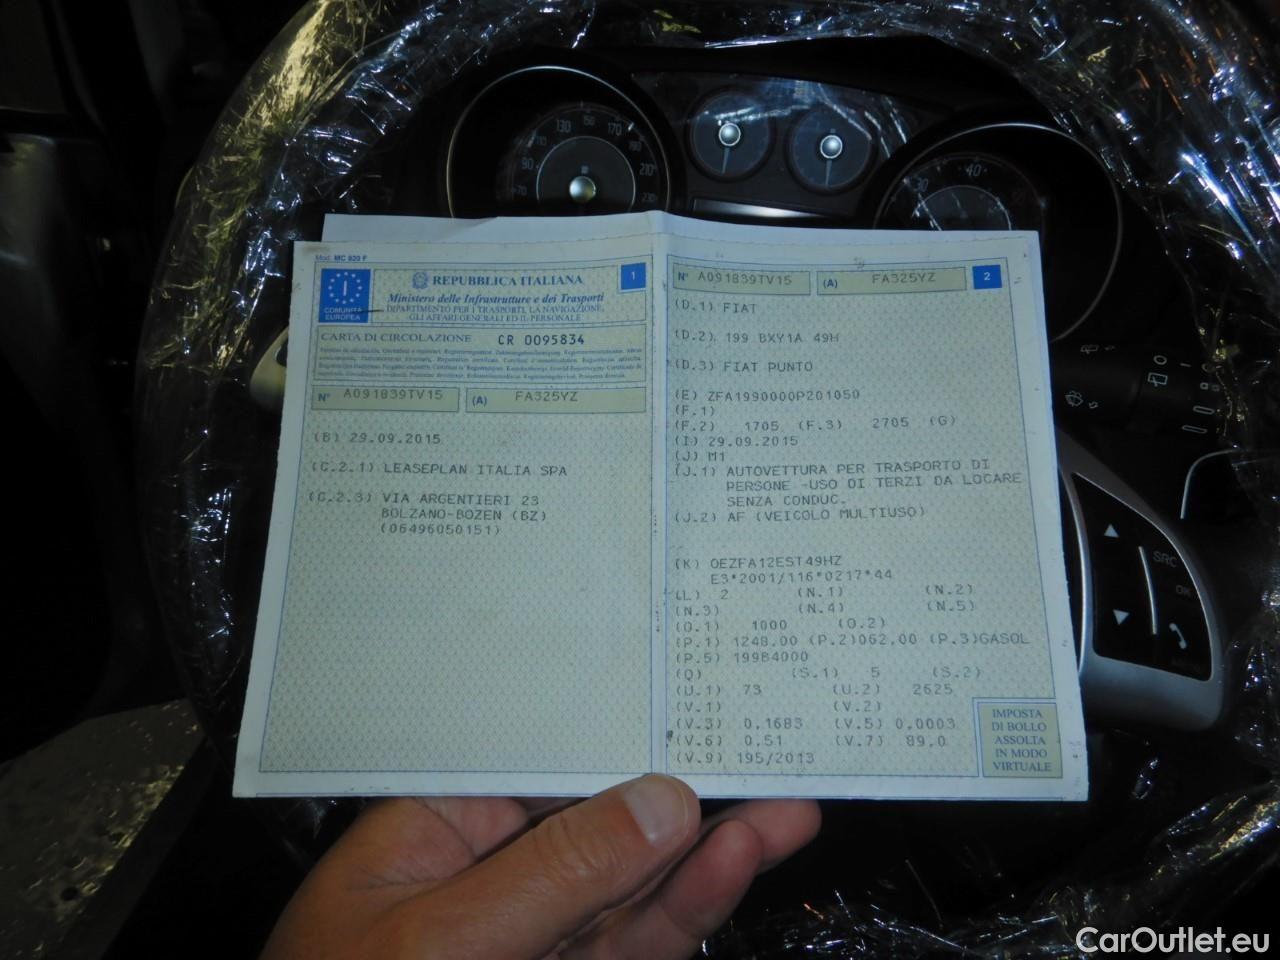 Mod. MC 820 F
I
COMUNITÀ
EUROPEA
REPUBBLICA ITALIANA
1
Ministero delle Infrastrutture e dei Trasporti
DIPARTIMENTO PER I TRASPORTI, LA NAVIGAZIONE,
GLI AFFARI GENERALI ED IL PERSONALE
CARTA DI CIRCOLAZIONE CR 0095834
N° A091839TV15 (A) FA325YZ
(B) 29.09.2015
(C.2.1) LEASEPLAN ITALIA SPA
(C.2.3) VIA ARGENTIERI 23
BOLZANO-BOZEN (BZ)
(06496050151)
N° A091839TV15 (A) FA325YZ 2
(D.1) FIAT
(D.2) 199 BXY1A 49H
(D.3) FIAT PUNTO
(E) ZFA1990000P201050
(F.1)
(F.2) 1705 (F.3) 2705 (G)
(I) 29.09.2015
(J) M1
(J.1) AUTOVETTURA PER TRASPORTO DI
PERSONE -USO DI TERZI DA LOCARE
SENZA CONDUC.
(J.2) AF (VEICOLO MULTIUSO)
(K) OEZFA12EST49HZ
E3*2001/116*0217*44
(L) 2 (N.1) (N.2)
(N.3) (N.4) (N.5)
(O.1) 1000 (O.2)
(P.1) 1248.00 (P.2)062.00 (P.3)GASOL
(P.5) 199B4000
(Q) (S.1) 5 (S.2)
(U.1) 73 (U.2) 2625
(V.1) (V.2)
(V.3) 0.1683 (V.5) 0.0003
(V.6) 0.51 (V.7) 89.0
(V.9) 195/2013
IMPOSTA
DI BOLLO
ASSOLTA
IN MODO
VIRTUALE
70
90
110
130
150
170
210
230
30
40
SRC
OK
CarOutlet.eu